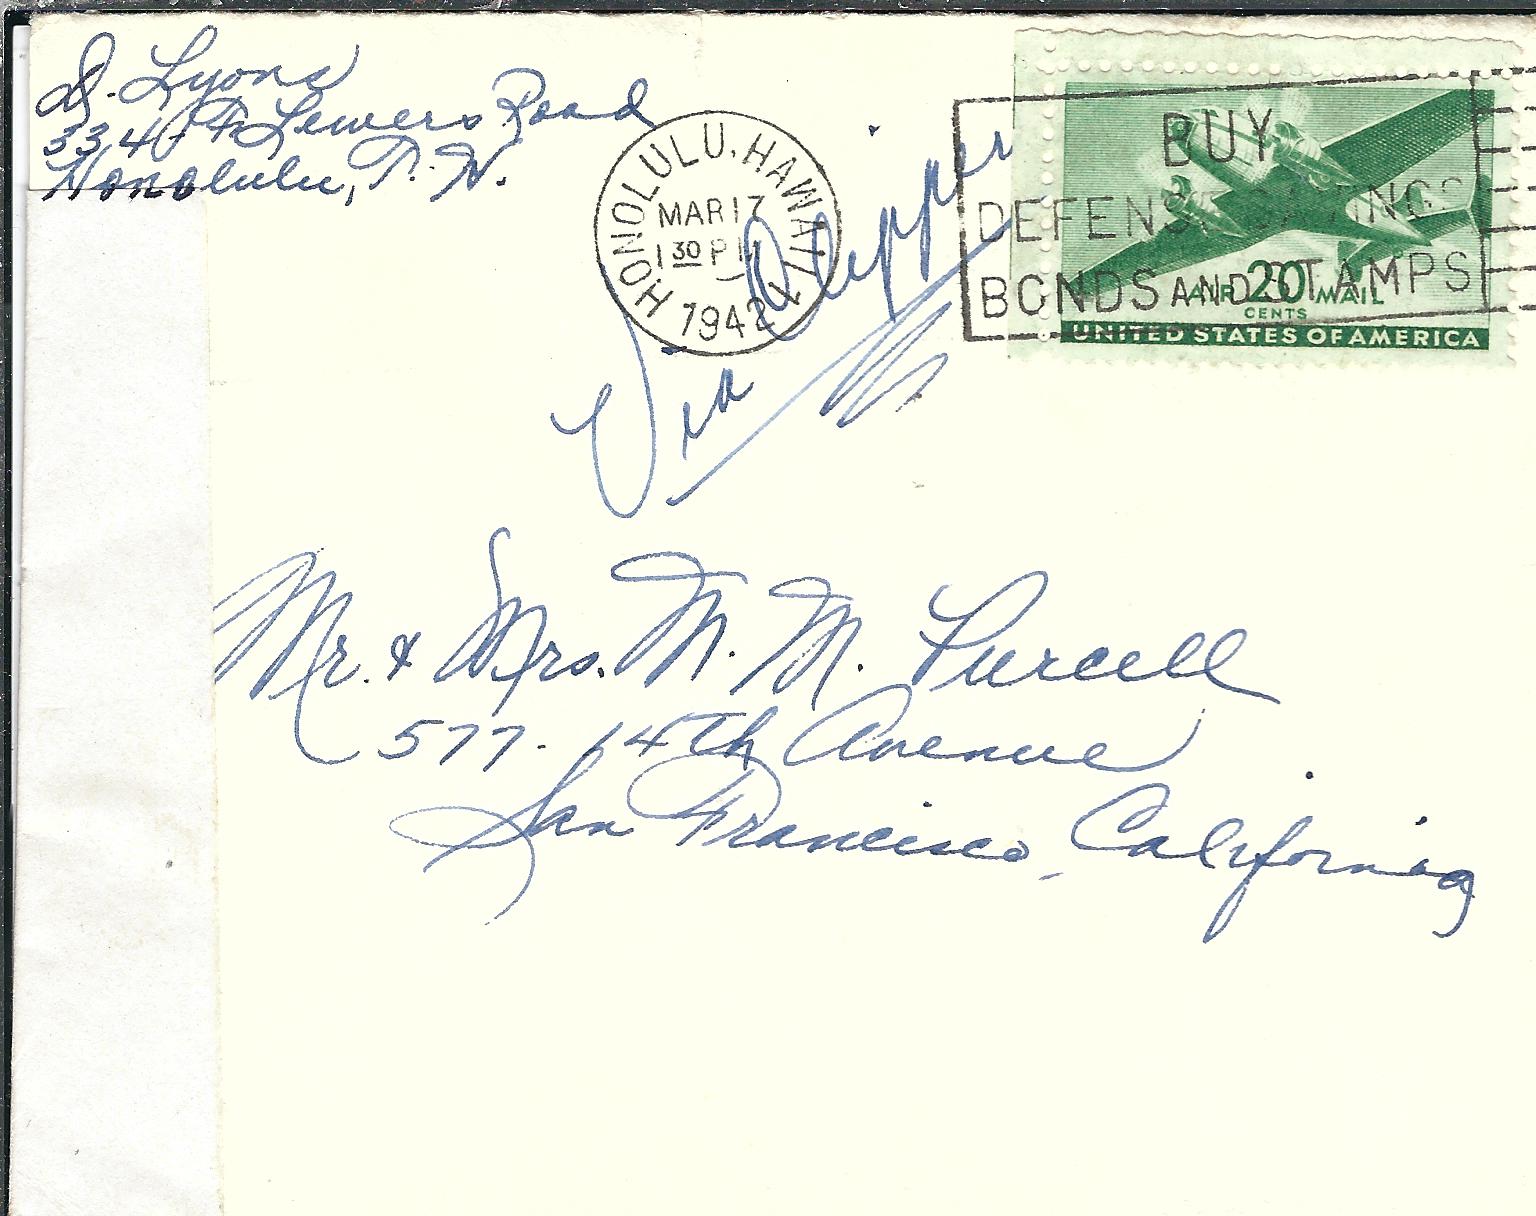 D. Lyons
334-F Lewers Road
Honolulu, T. H.
HONOLULU, HAWAII
MAR 17
1 30 PM
1942
Via Clipper
BUY
DEFENSE SAVINGS
BONDS AND STAMPS
AIR 20 MAIL
CENTS
UNITED STATES OF AMERICA
Mr. & Mrs. M. M. Purcell
577-14th Avenue
San Francisco, California